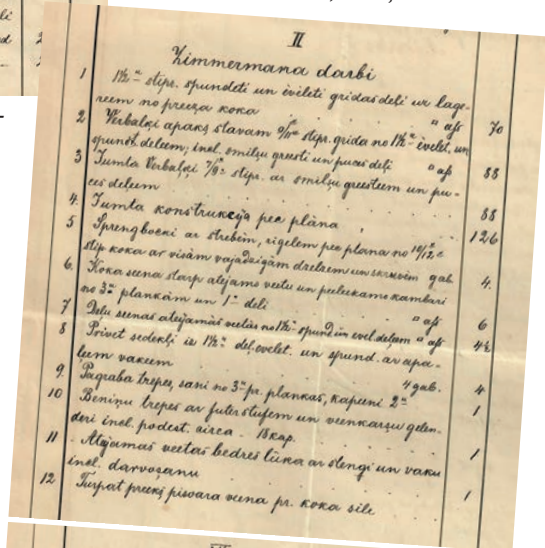 li
d 2
II
Zimmermana darbi
1 1½" stipr. spundeti un eveleti gridas deļi uz lage-
reem no preeža koka " aß 70
2 Verbalķi apakš stavam stipr. grida no 1½" evelet. un
spund. deleem, incl. smilšu greesti un puces deļi " aß 88
3 Jumta Verbalķi 7/9" stipr. ar smilšu greesteem un pu-
ces deleem 88
4. Jumta konstrukcija pec plāna 126
5 Sprengbocki ar strebēm, rigeļem pec plana no 10/12"
stip koka ar visām vajadzigām dzelzem un skruvēm gab. 4.
6. Koka seena starp atejamo veetu un peeleekamo kambari
no 3" plankām un 1" deļi " aß 6
7 Deļu seenas atejamās veetās no 1½" spund un evel. deļem " aß 42
8 Privet sedekļi is 1½" deļ. evelet. un spund. ar apa-
leem vakeem 4 gab. 4
9. Pagraba trepes, sani no 3" pr. plankas, kapeeni 2" 1
10 Beniņu trepes ar futerstufem un veenkaršu gelen-
deri incl. podest. circa 18 kap. 1
11 Atejamas veetas bedres lūka ar slengi un vaku
incl. darvošanu 1
12 Turpat preekš pisoara veena pr. koka sile